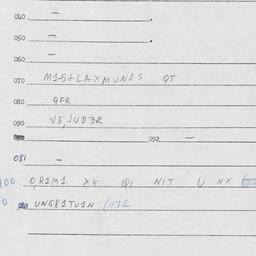 040 –
050 –
060 –
070 M1S+LAXMUN1S GT
080 GFR
090 VE,JUD3R
092 –
081 –
100 O,R1M1 XX QI NIT U XX
0 UNG81TU1N (072